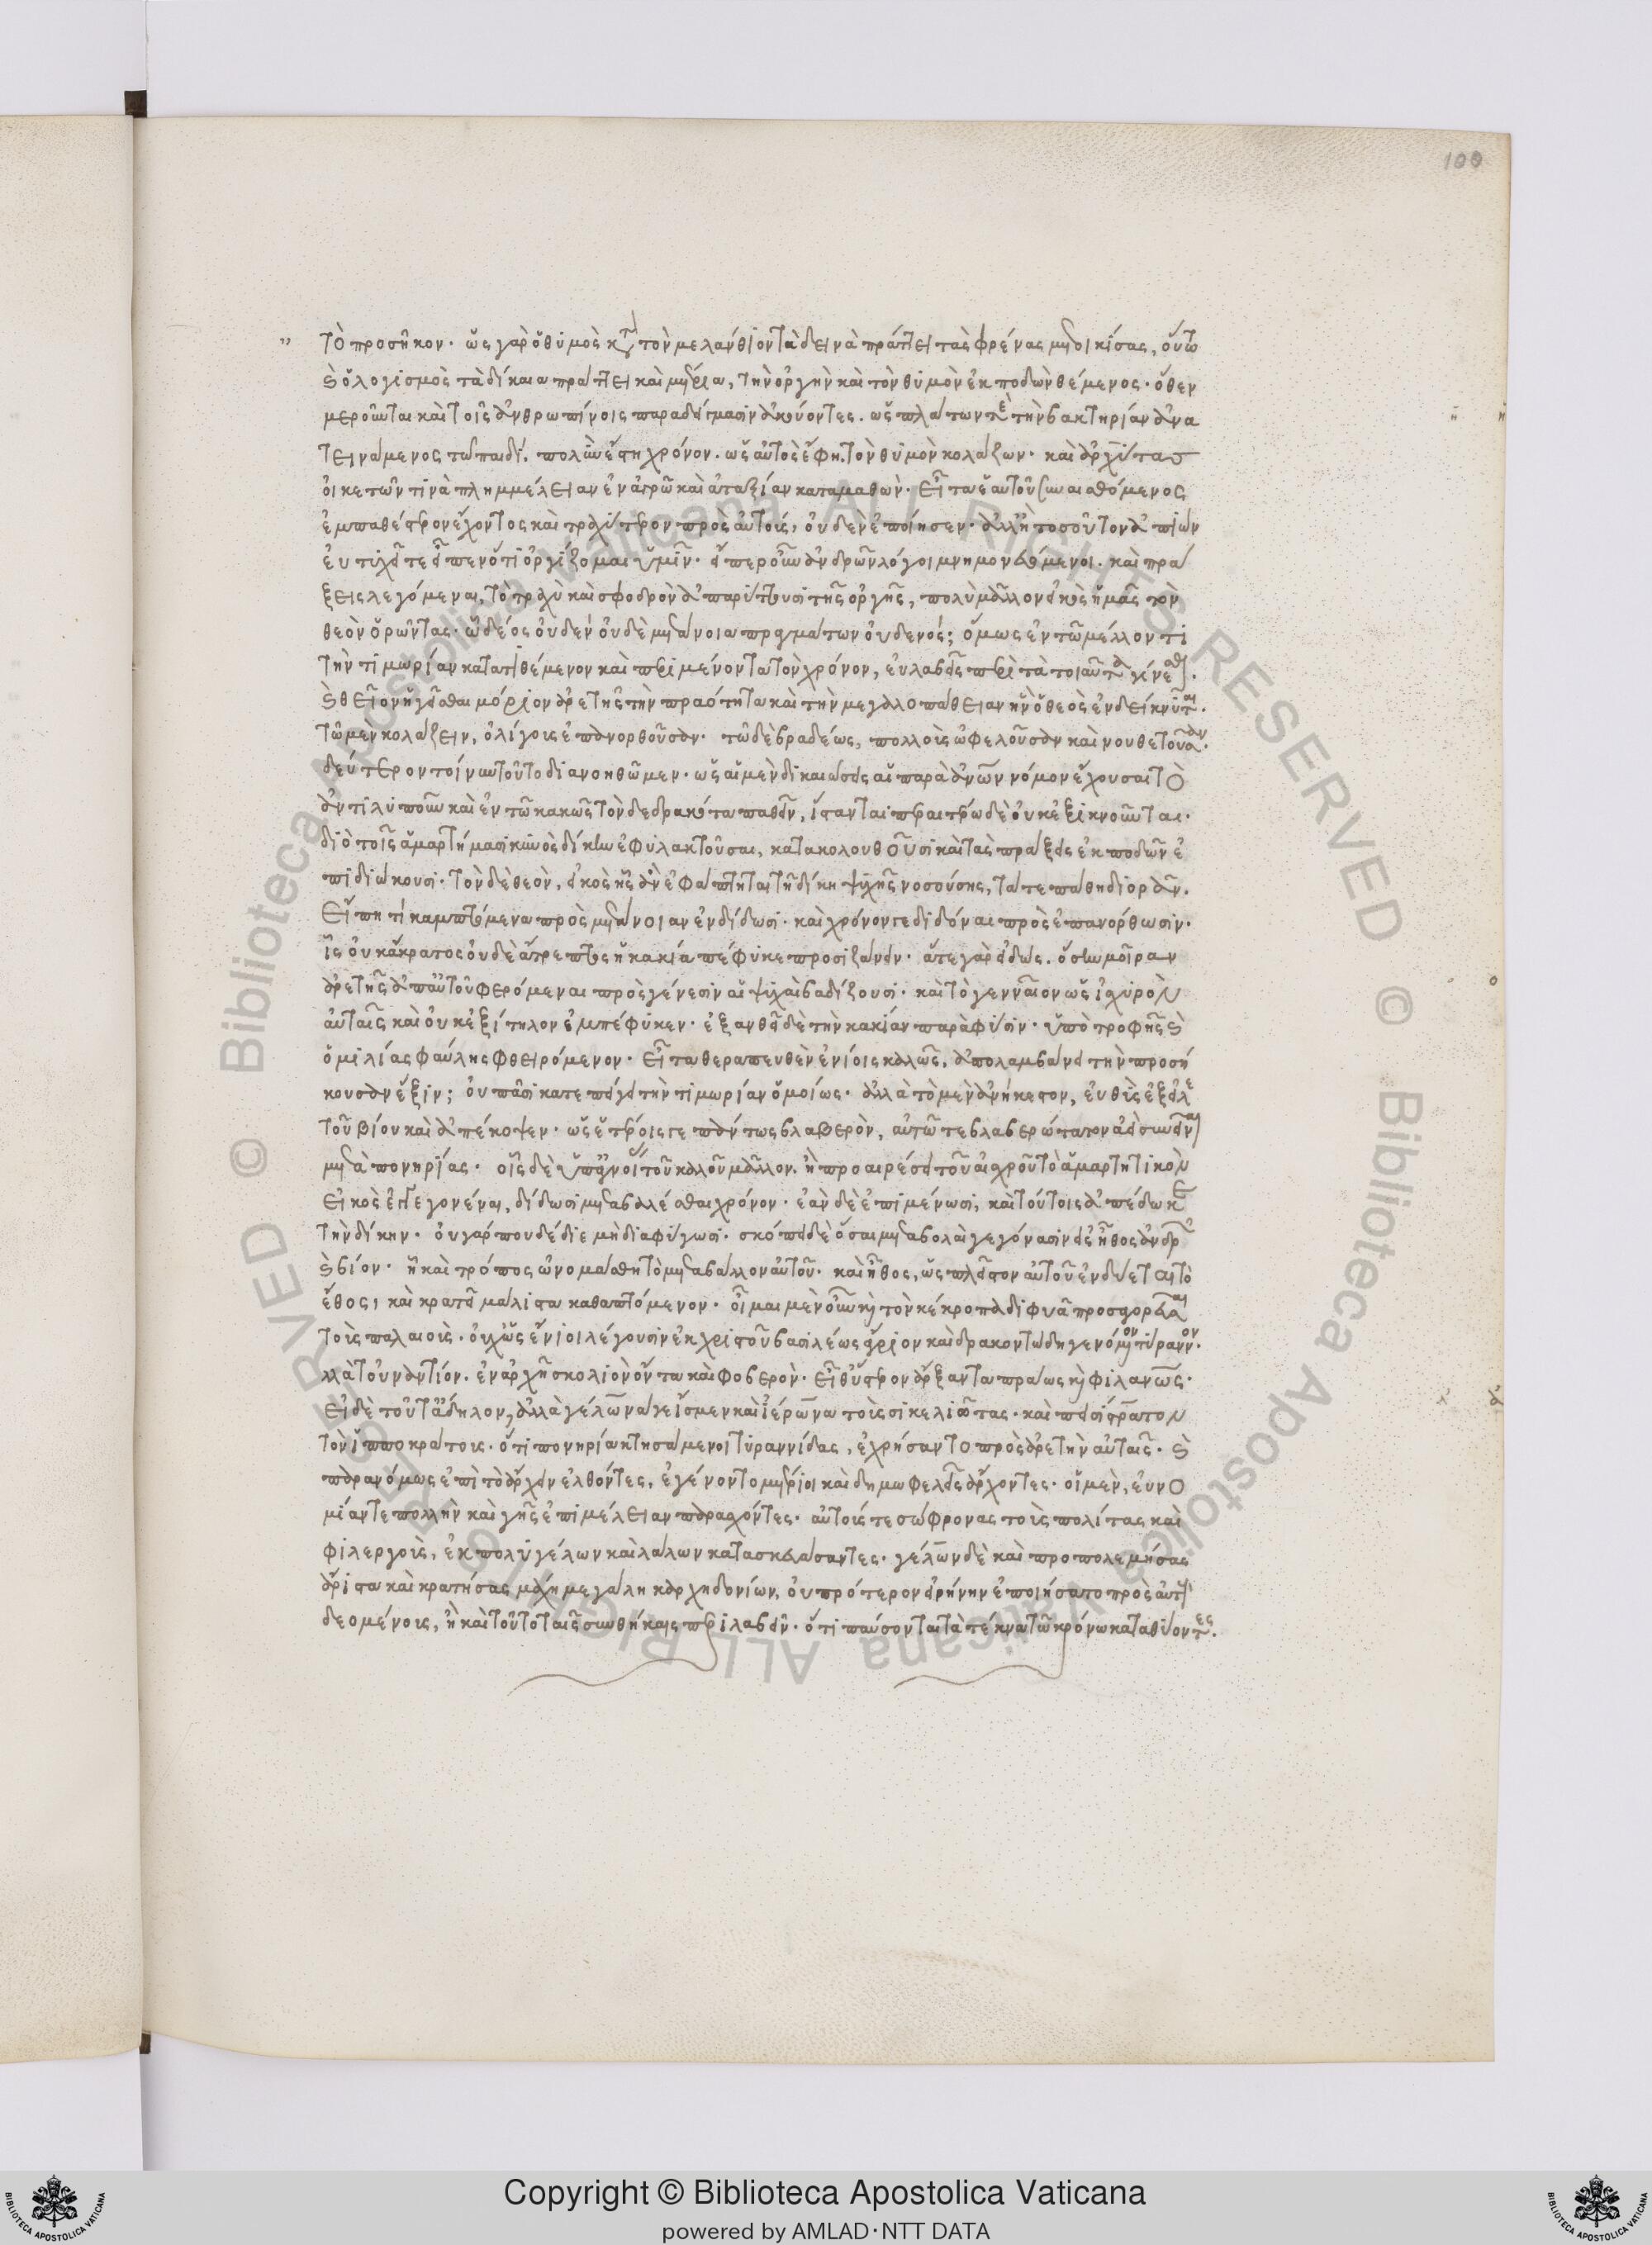 100
τὸ προσῆκον. ὡς γὰρ ὁ θυμὸς κατὰ τὸν μελάνθιον τὰ δεινὰ πράττει τὰς φρένας μετοικίσας, οὕτω
καὶ ὁ λογισμὸς τὰ δίκαια πράττει καὶ μέτρια, τὴν ὀργὴν καὶ τὸν θυμὸν ἐκποδὼν θέμενος. ὅθεν
μεροῦνται καὶ τοῖς ἀνθρωπίνοις παραδείγμασιν ἀκούοντες. ὡς πλάτων τε τὴν βακτηρίαν ἀνα
τεινάμενος τῷ παιδὶ. πολὺν ἔστη χρόνον. ὡς αὐτὸς ἔφη. τὸν θυμὸν κολάζων. καὶ ἀρχύτας
οἰκετῶν τινὰ πλημμέλειαν ἐν ἀγρῷ καὶ ἀταξίαν καταμαθὼν. εἶτα ἑαυτοῦ συναισθόμενος
ἐμπαθέστερον ἔχοντος καὶ τραχύτερον πρὸς αὐτοὺς, οὐδὲν ἐποίησεν. ἀλλ' ἢ τοσοῦτον ἀπιὼν
εὐτυχεῖτε εἶπεν ὅτι ὀργίζομαι ὑμῖν. εἴπερ οὖν ἀνδρῶν λόγοι μνημονευόμενοι. καὶ πρά
ξεις λεγόμεναι, τὸ τραχὺ καὶ σφοδρὸν ἀπαρύτουσι τῆς ὀργῆς, πολὺ μᾶλλον εἰκὸς ἡμᾶς τὸν
θεὸν ὁρῶντας. ᾧ δέος οὐδὲν οὐδὲ μετάνοια πραγμάτων οὐδενός; ὅμως ἐν τῷ μέλλοντι
τὴν τιμωρίαν κατατιθέμενον καὶ περιμένοντα τὸν χρόνον, εὐλαβεῖς περὶ τὰ τοιαῦτα γίνεσθαι.
καὶ θεῖον ἡγεῖσθαι μόριον ἀρετῆς τὴν πραότητα καὶ τὴν μεγαλοπάθειαν ἣν ὁ θεὸς ἐνδείκνυται.
τῷ μὲν κολάζειν, ὀλίγους ἐπανορθοῦσαν. τῷ δὲ βραδέως, πολλοὺς ὠφελοῦσαν καὶ νουθετοῦσαν.
δεύτερον τοίνυν τοῦτο διανοηθῶμεν. ὡς αἱ μὲν δικαιώσεις αἱ παρὰ ἀνθρώπων νόμον ἔχουσαι τὸ
ἀντιλυποῦν καὶ ἐν τῷ κακῶς τὸν δεδρακότα παθεῖν, ἵστανται περαιτέρω δὲ οὐκ ἐξικνοῦνται.
διὸ τοῖς ἁμαρτήμασι κυνὸς δίκην ἐφυλακτοῦσαι, κατακολουθοῦσι καὶ τὰς πράξεις ἐκ ποδῶν ἐ
πιδιώκουσι. τὸν δὲ θεὸν, εἰκὸς ἧς ἂν ἐφάπτηται τῇ δίκῃ ψυχῆς νοσούσης, τά τε πάθη διορᾶν.
εἴ πή τι καμπτόμενα πρὸς μετάνοιαν ἐνδίδωσι. καὶ χρόνον γε διδόναι πρὸς ἐπανόρθωσιν.
οἷς οὐκ ἄκρατος οὐδὲ ἄτρεπτος ἡ κακία πέφυκε προσιζάνειν. ἅτε γὰρ εἰδὼς. ὅσην μοῖραν
ἀρετῆς ἀπ' αὐτοῦ φερόμεναι πρὸς γένεσιν αἱ ψυχαὶ βαδίζουσι. καὶ τὸ γενναῖον ὡς ἰσχυρὸν
αὐταῖς καὶ οὐκ ἐξίτηλον ἐμπέφυκεν. ἐξανθεῖ δὲ τὴν κακίαν παρὰ φύσιν. ὑπὸ τροφῆς καὶ
ὁμιλίας φαύλης φθειρόμενον. εἶτα θεραπευθὲν ἐνίοις καλῶς, ἀπολαμβάνει τὴν προσή
κουσαν ἕξιν; οὐ πᾶσι κατεπείγει τὴν τιμωρίαν ὁμοίως. ἀλλὰ τὸ μὲν ἀνήκεστον, εὐθὺς ἐξεῖλε
τοῦ βίου καὶ ἀπέκοψεν. ὡς ἑτέροις γε πάντως βλαβερὸν, αὑτῷ τε βλαβερώτατον ἀεὶ συνεῖναι
μετὰ πονηρίας. οἷς δὲ ὑπ' ἀγνοίας τοῦ καλοῦ μᾶλλον. ἢ προαιρέσει τοῦ αἰσχροῦ τὸ ἁμαρτητικὸν
εἰκὸς ἐγγεγονέναι, δίδωσι μεταβαλέσθαι χρόνον. ἐὰν δὲ ἐπιμένωσι, καὶ τούτοις ἀπέδωκε
τὴν δίκην. οὐ γάρ που δέδιε μὴ διαφύγωσι. σκόπει δὲ ὅσαι μεταβολαὶ γεγόνασιν εἰς ἦθος ἀνδρῶν
καὶ βίον. ᾗ καὶ τρόπος ὠνομάσθη τὸ μεταβάλλον αὐτοῦ. καὶ ἦθος, ὡς πλεῖστον αὐτοῦ ἐνδύεται τὸ
ἔθος, καὶ κρατεῖ μάλιστα καθαπτόμενον. οἶμαι μὲν οὖν καὶ τὸν κέκροπα διφυᾶ προσαγορεῦσαι
τοὺς παλαιοὺς. οὐχ ὡς ἔνιοι λέγουσιν ἐκ χρηστοῦ βασιλέως ἄγριον καὶ δρακοντώδη γενόμενον τύραννον.
ἀλλὰ τοὐναντίον. ἐν ἀρχῇ σκολιὸν ὄντα καὶ φοβερὸν. εἶθ' ὕστερον ἄρξαντα πράως καὶ φιλανθρώπως.
εἰ δὲ τοῦτ' ἄδηλον, ἀλλὰ γέλωνά γε ἴσμεν καὶ ἱέρωνα τοὺς σικελιώτας. καὶ πεισίστρατον
τὸν ἱπποκράτους. ὅτι πονηρίᾳ κτησάμενοι τυραννίδας, ἐχρήσαντο πρὸς ἀρετὴν αὐταῖς. καὶ
παρανόμως ἐπὶ τὸ ἄρχειν ἐλθόντες, ἐγένοντο μέτριοι καὶ δημωφελεῖς ἄρχοντες. οἱ μὲν, εὐνο
μίαν τε πολλὴν καὶ γῆς ἐπιμέλειαν παρασχόντες. αὐτούς τε σώφρονας τοὺς πολίτας καὶ
φιλεργοὺς, ἐκ πολυγέλων καὶ λάλων κατασκευάσαντες. γέλων δὲ καὶ προπολεμήσας
ἄριστα καὶ κρατήσας μάχῃ μεγάλῃ καρχηδονίων, οὐ πρότερον εἰρήνην ἐποιήσατο πρὸς αὐτοὺς
δεομένους, ἢ καὶ τοῦτο ταῖς συνθήκαις περιλαβεῖν. ὅτι παύσονται τὰ τέκνα τῷ κρόνῳ καταθύοντες.
Copyright © Biblioteca Apostolica Vaticana
powered by AMLAD·NTT DATA